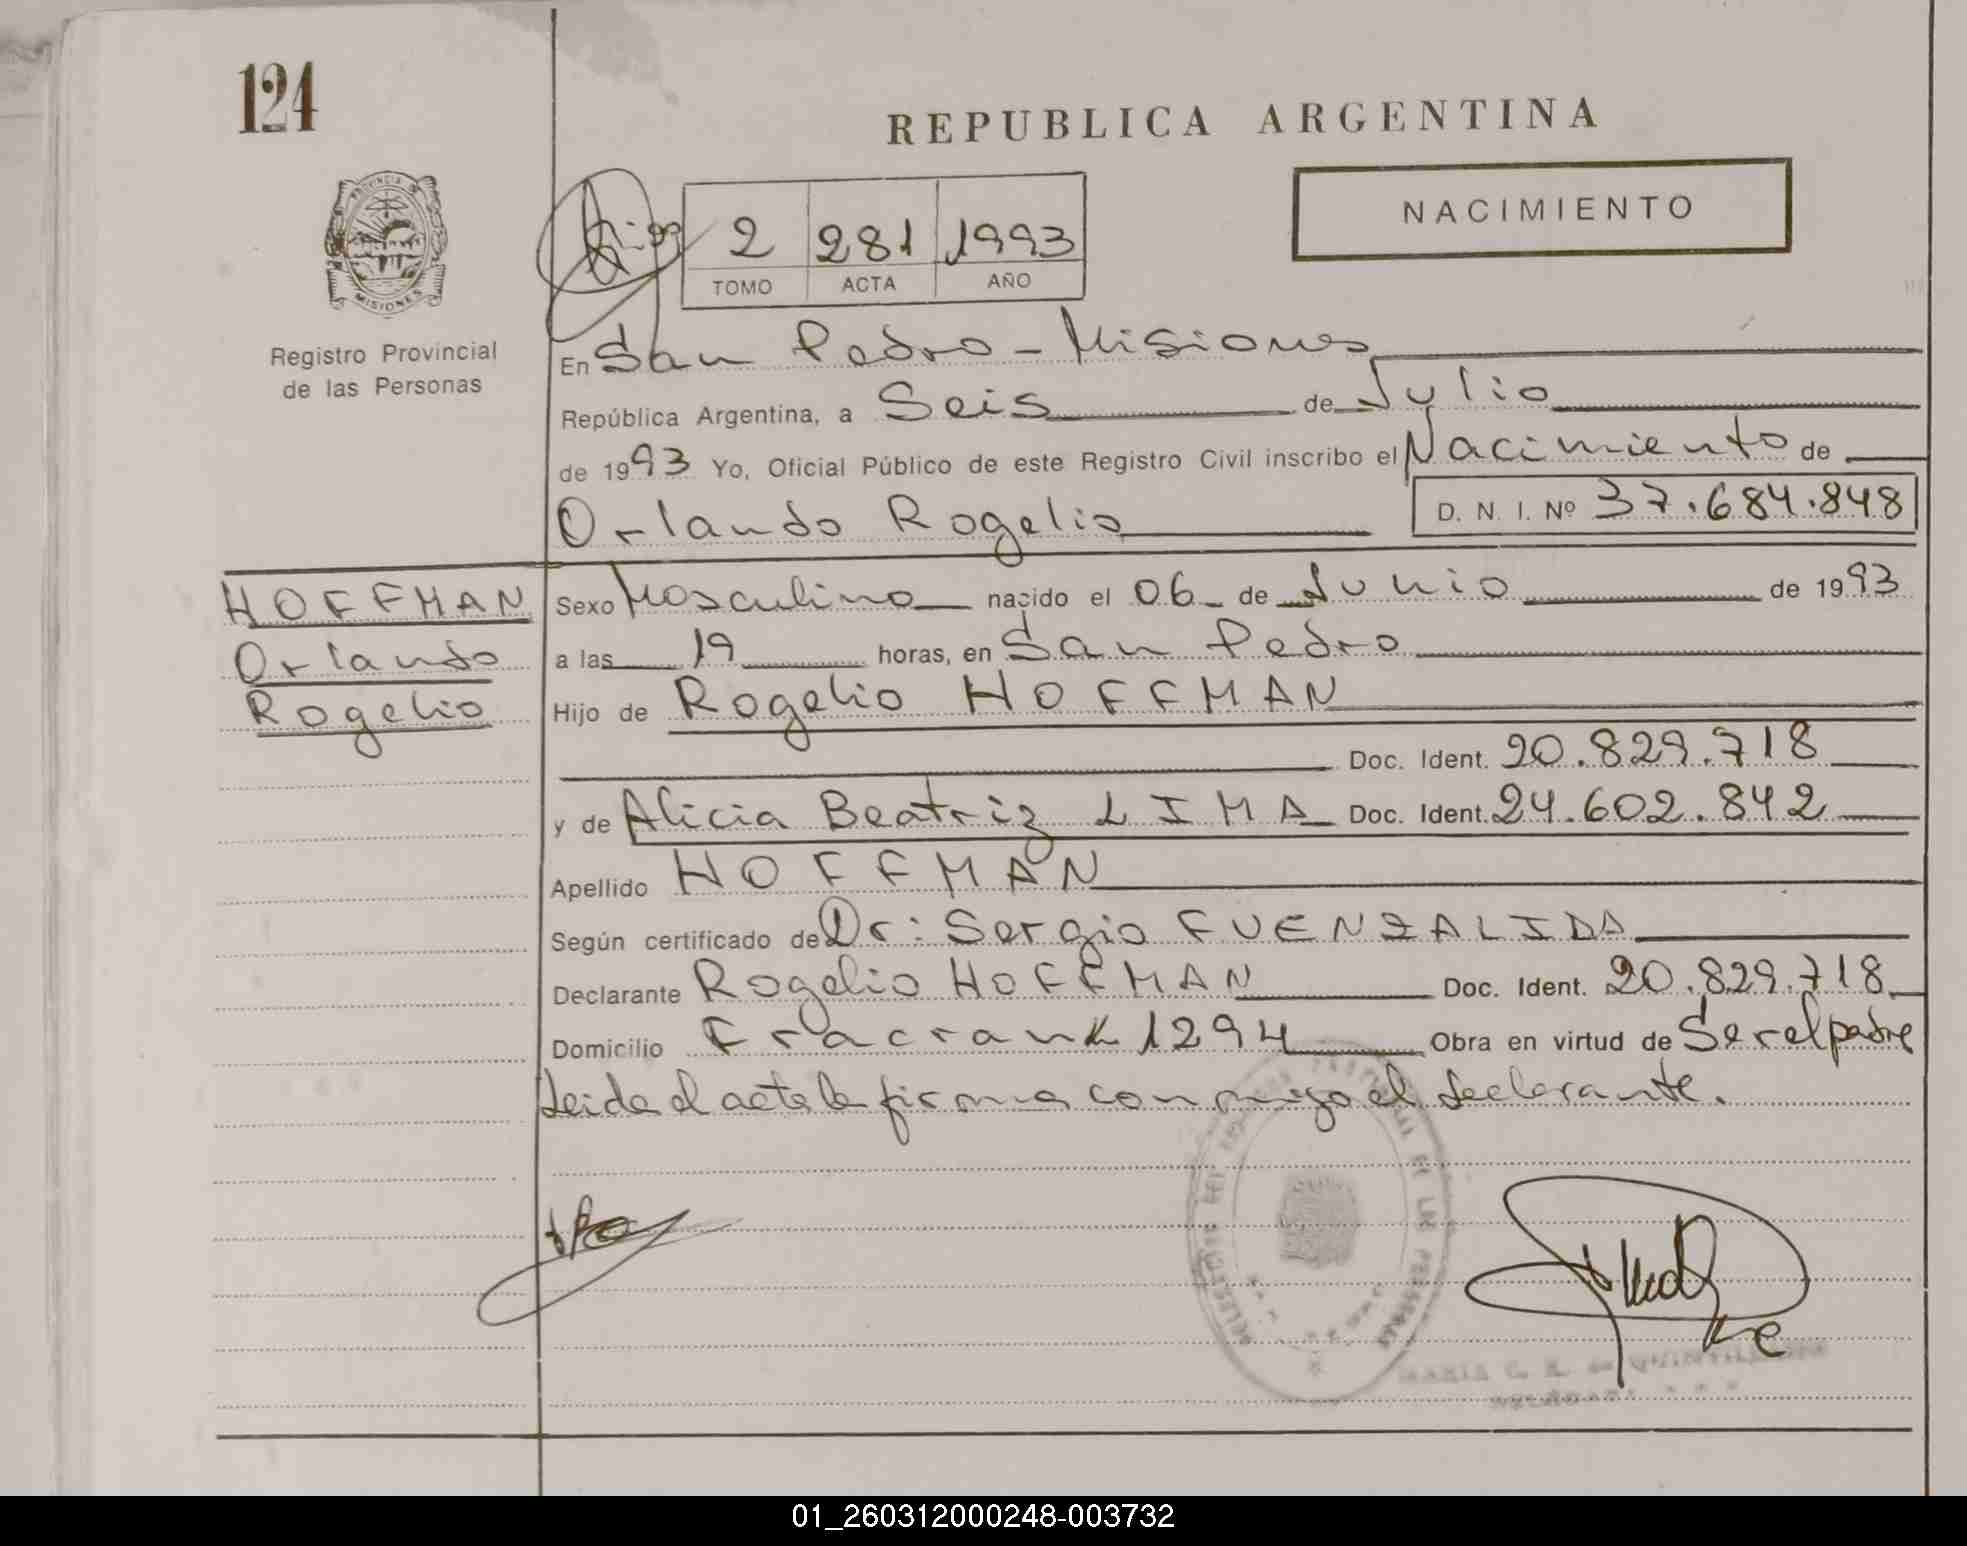 124
REPUBLICA ARGENTINA
NACIMIENTO
2 281 1993
TOMO ACTA AÑO
PROVINCIA DE
MISIONES
Registro Provincial
de las Personas
En San Pedro - Misiones
República Argentina, a Seis de Julio
de 1993 Yo, Oficial Público de este Registro Civil inscribo el Nacimiento de
Orlando Rogelio D. N. I. Nº 37.684.848
HOFFMAN
Orlando
Rogelio
Sexo Masculino nacido el 06 de Junio de 1993
a las 19 horas, en San Pedro
Hijo de Rogelio HOFFMAN
Doc. Ident. 20.829.718
y de Alicia Beatriz LIMA Doc. Ident. 24.602.842
Apellido HOFFMAN
Según certificado de Dr: Sergio FUENZALIDA
Declarante Rogelio HOFFMAN Doc. Ident. 20.829.718
Domicilio Fracran 1294 Obra en virtud de Ser el padre
Leida el acta la firma conmigo el declarante.
MARIA C. R. de
01_260312000248-003732